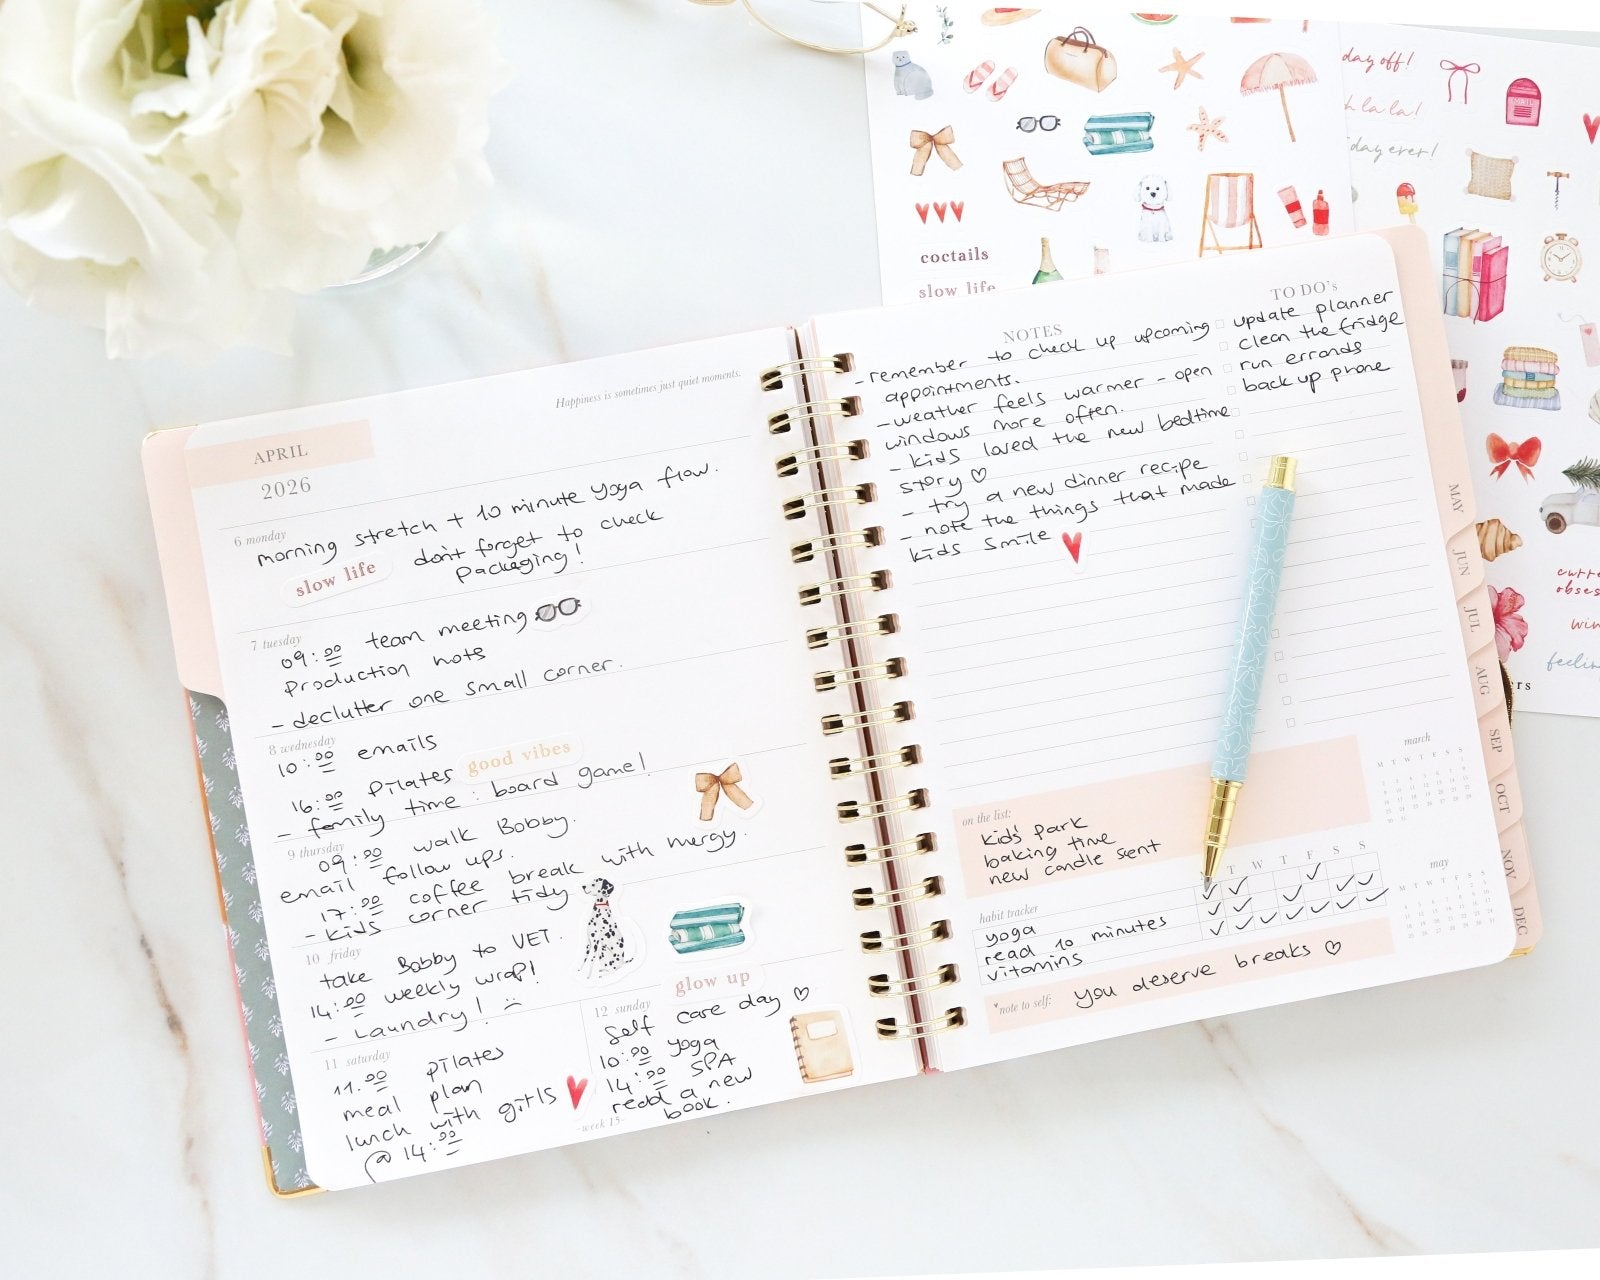 Happiness is sometimes just quiet moments.
APRIL
2026
6 monday
morning stretch + 10 minute yoga flow.
slow life
don't forget to check
packaging!
7 tuesday
09:00 team meeting
Production note
- declutter one small corner.
8 wednesday
10:00 emails
16:00 Pilates
good vibes
- family time: board game!
9 thursday
09:00 walk Bobby.
email follow ups.
17:00 coffee break with mergy.
- kids corner tidy
10 friday
take Bobby to VET.
14:00 weekly wrap!
- Laundry!
11 saturday
11.00 pilates
meal plan
lunch with girls
@ 14:00
glow up
12 sunday
Self care day ♡
10:00 yoga
14:00 SPA
read a new
book.
-week 15-
NOTES
- remember to check up upcoming
appointments.
- weather feels warmer - open
windows more often.
- kids loved the new bedtime
story ♡
- try a new dinner recipe
- note the things that made
kids smile
TO DO's
update planner
clean the fridge
run errands
back up phone
on the list:
kids' park
baking time
new candle scent
habit tracker
T W T F S S
yoga
read 10 minutes
vitamins
*note to self:
you deserve breaks ♡
march
M T W T F S S
may
M T W T F S S
MAY
JUN
JUL
AUG
SEP
OCT
NOV
DEC
coctails
slow life
day off!
la la!
day ever!
MAIL